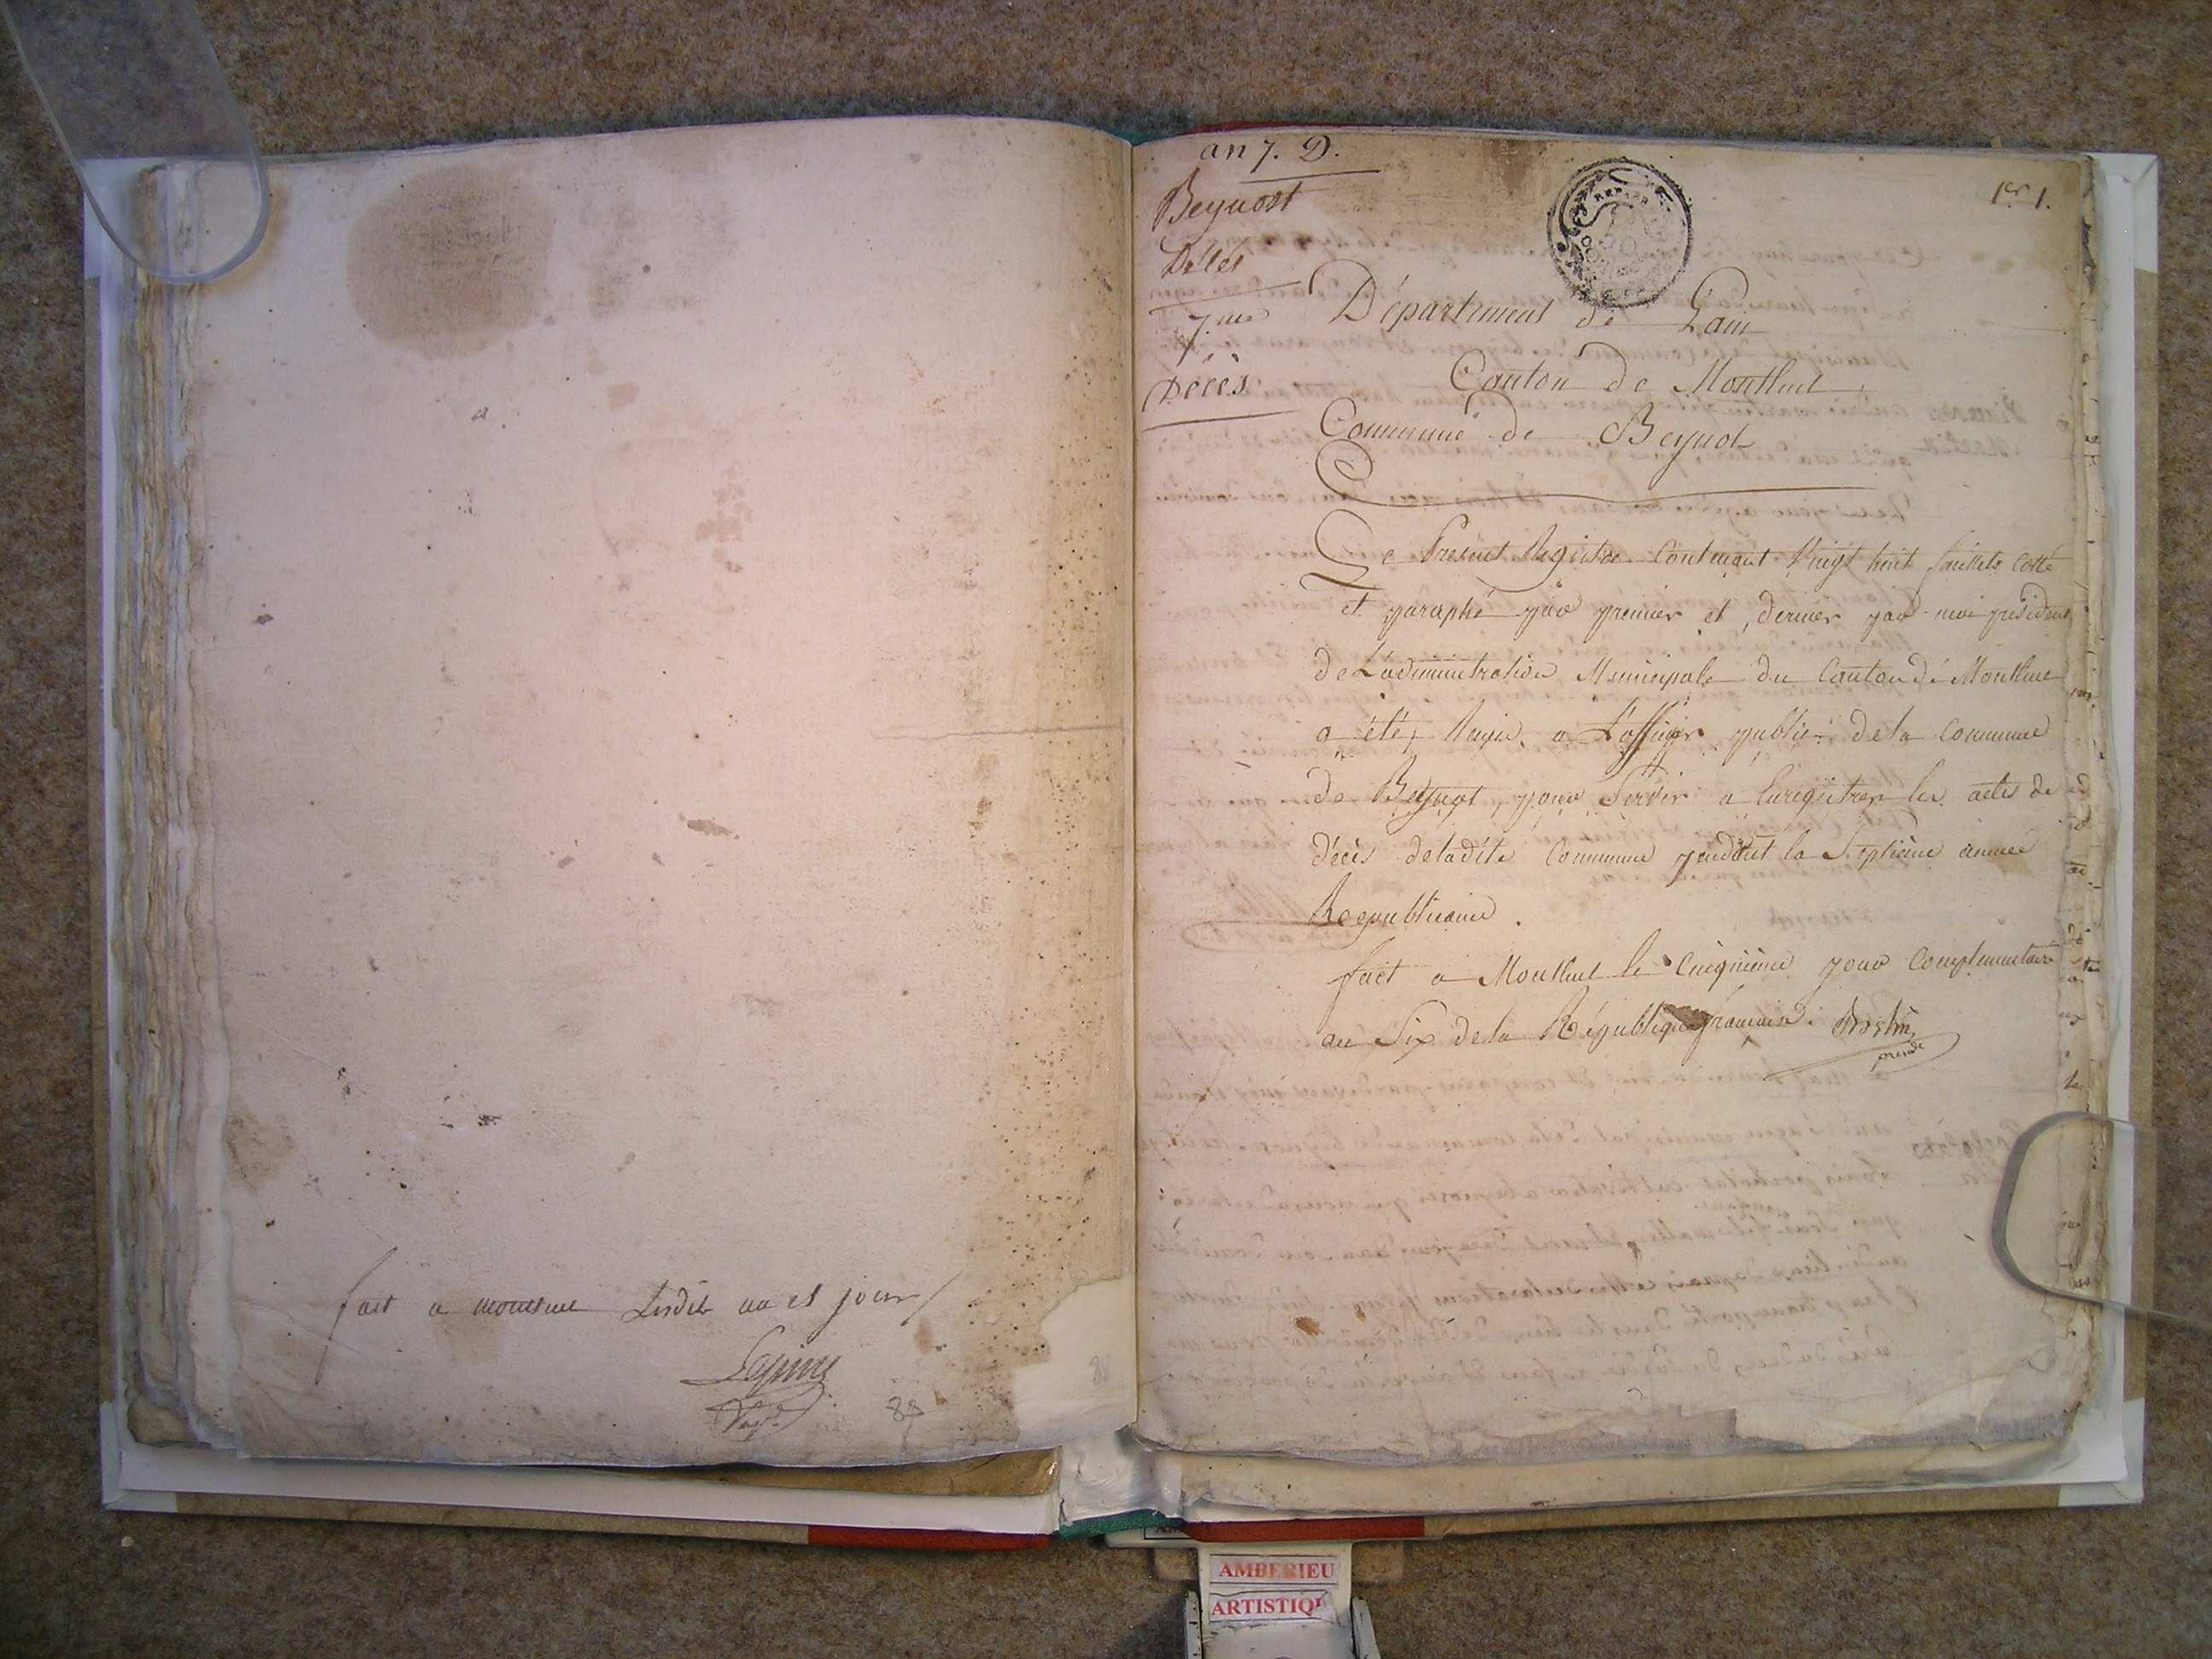 fait a montluel Lesdits an et jour
88
an 7. D.
Beynost
Décès
7.me
Décès
1er 1.
Département de L'ain
Canton de Montluel
Commune de Beynot
Le Present Registre Contenant Vingt huit feuillets Cotté
et paraphé par premier et dernier par moi président
de L'adminitration Municipale du Canton de Montluel
a été, Remis a L'officier public de la Commune
de Beynot, pour Servir a Enregistrer les actes de
décès deladite Commune pendant la Septième année
Republicaine.
fait a Montluel le Cinquième jour Complementaire
an Six de la République française.
AMBERIEU
ARTISTIQU